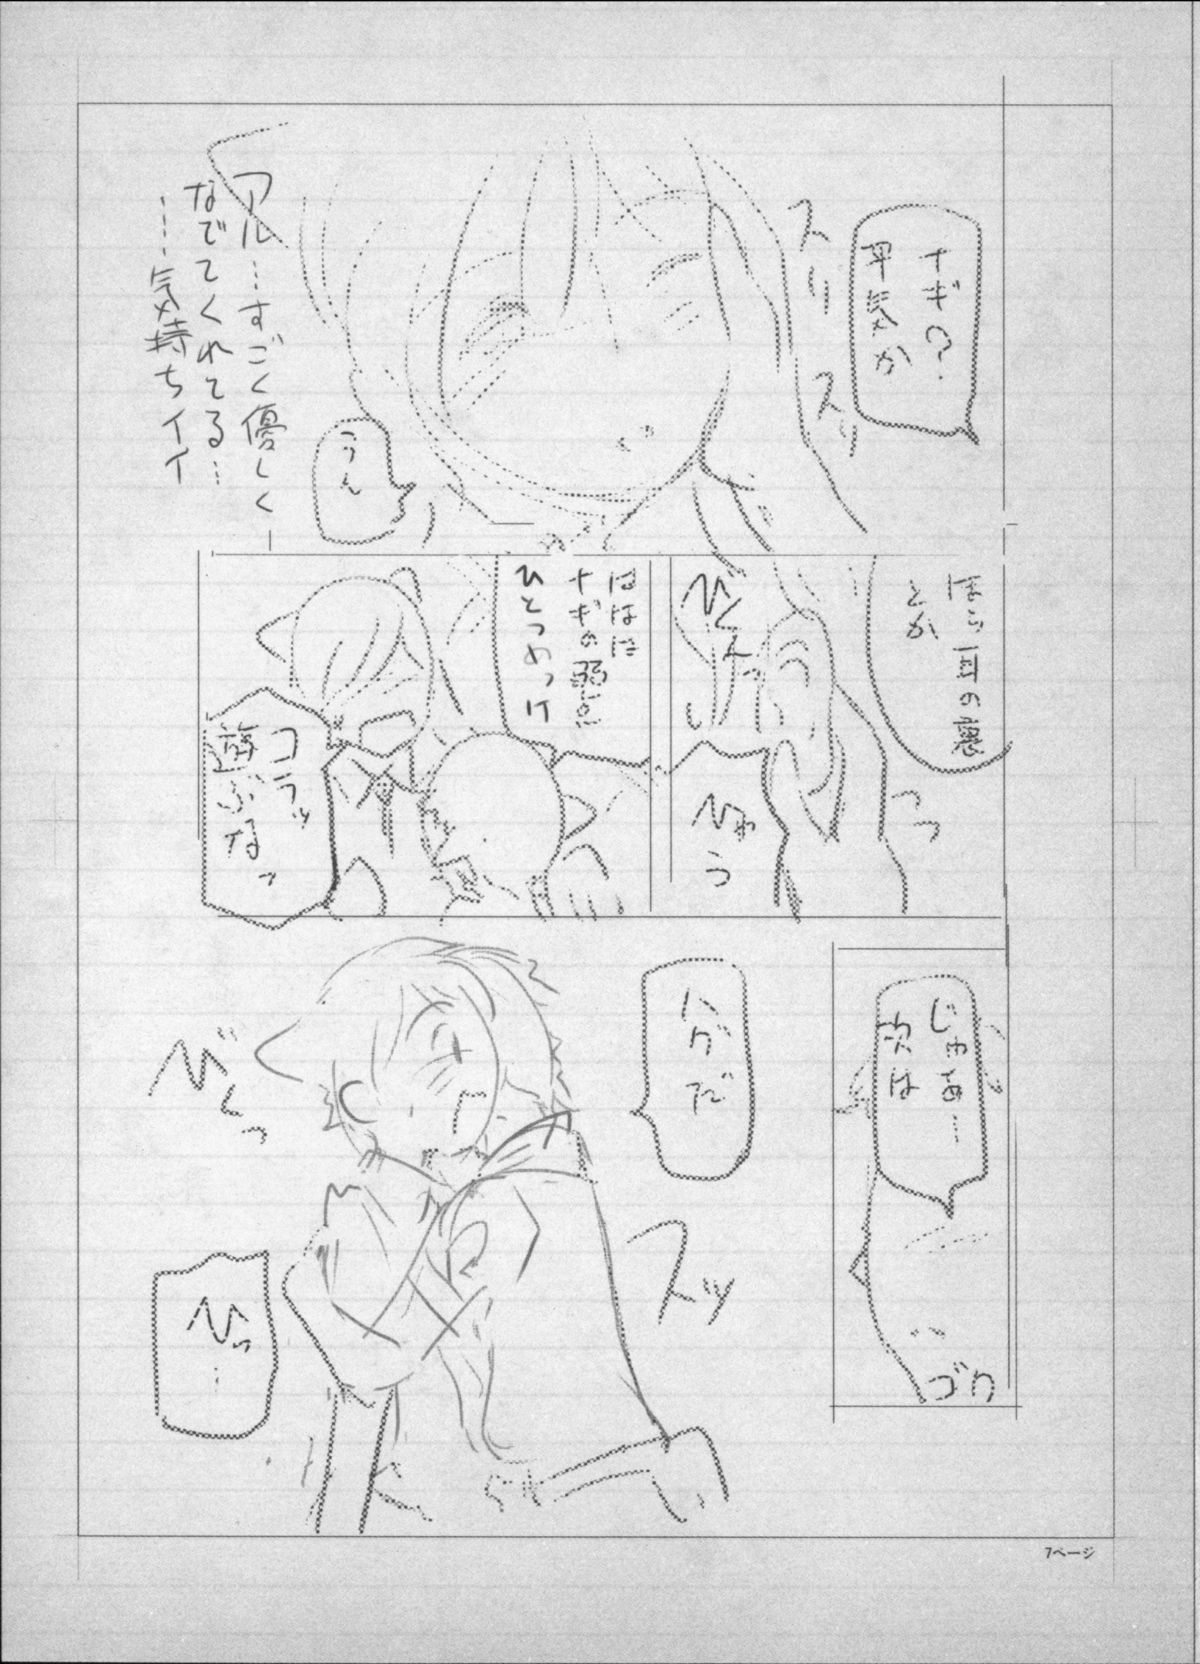 ナギ?
平気か
スリ
スリ
うん
アル…すごく優しく
なでてくれてる…
……気持ちイイ
ほら耳の裏
とか
びくんっ
ひゃう
っっ
ははは
ナギの弱点
ひとつめっけ
コラッ
遊ぶなっ
じゃあ…
次は
ゴク
ハグだ
スッ
びくっ
ひっ…
7ページ